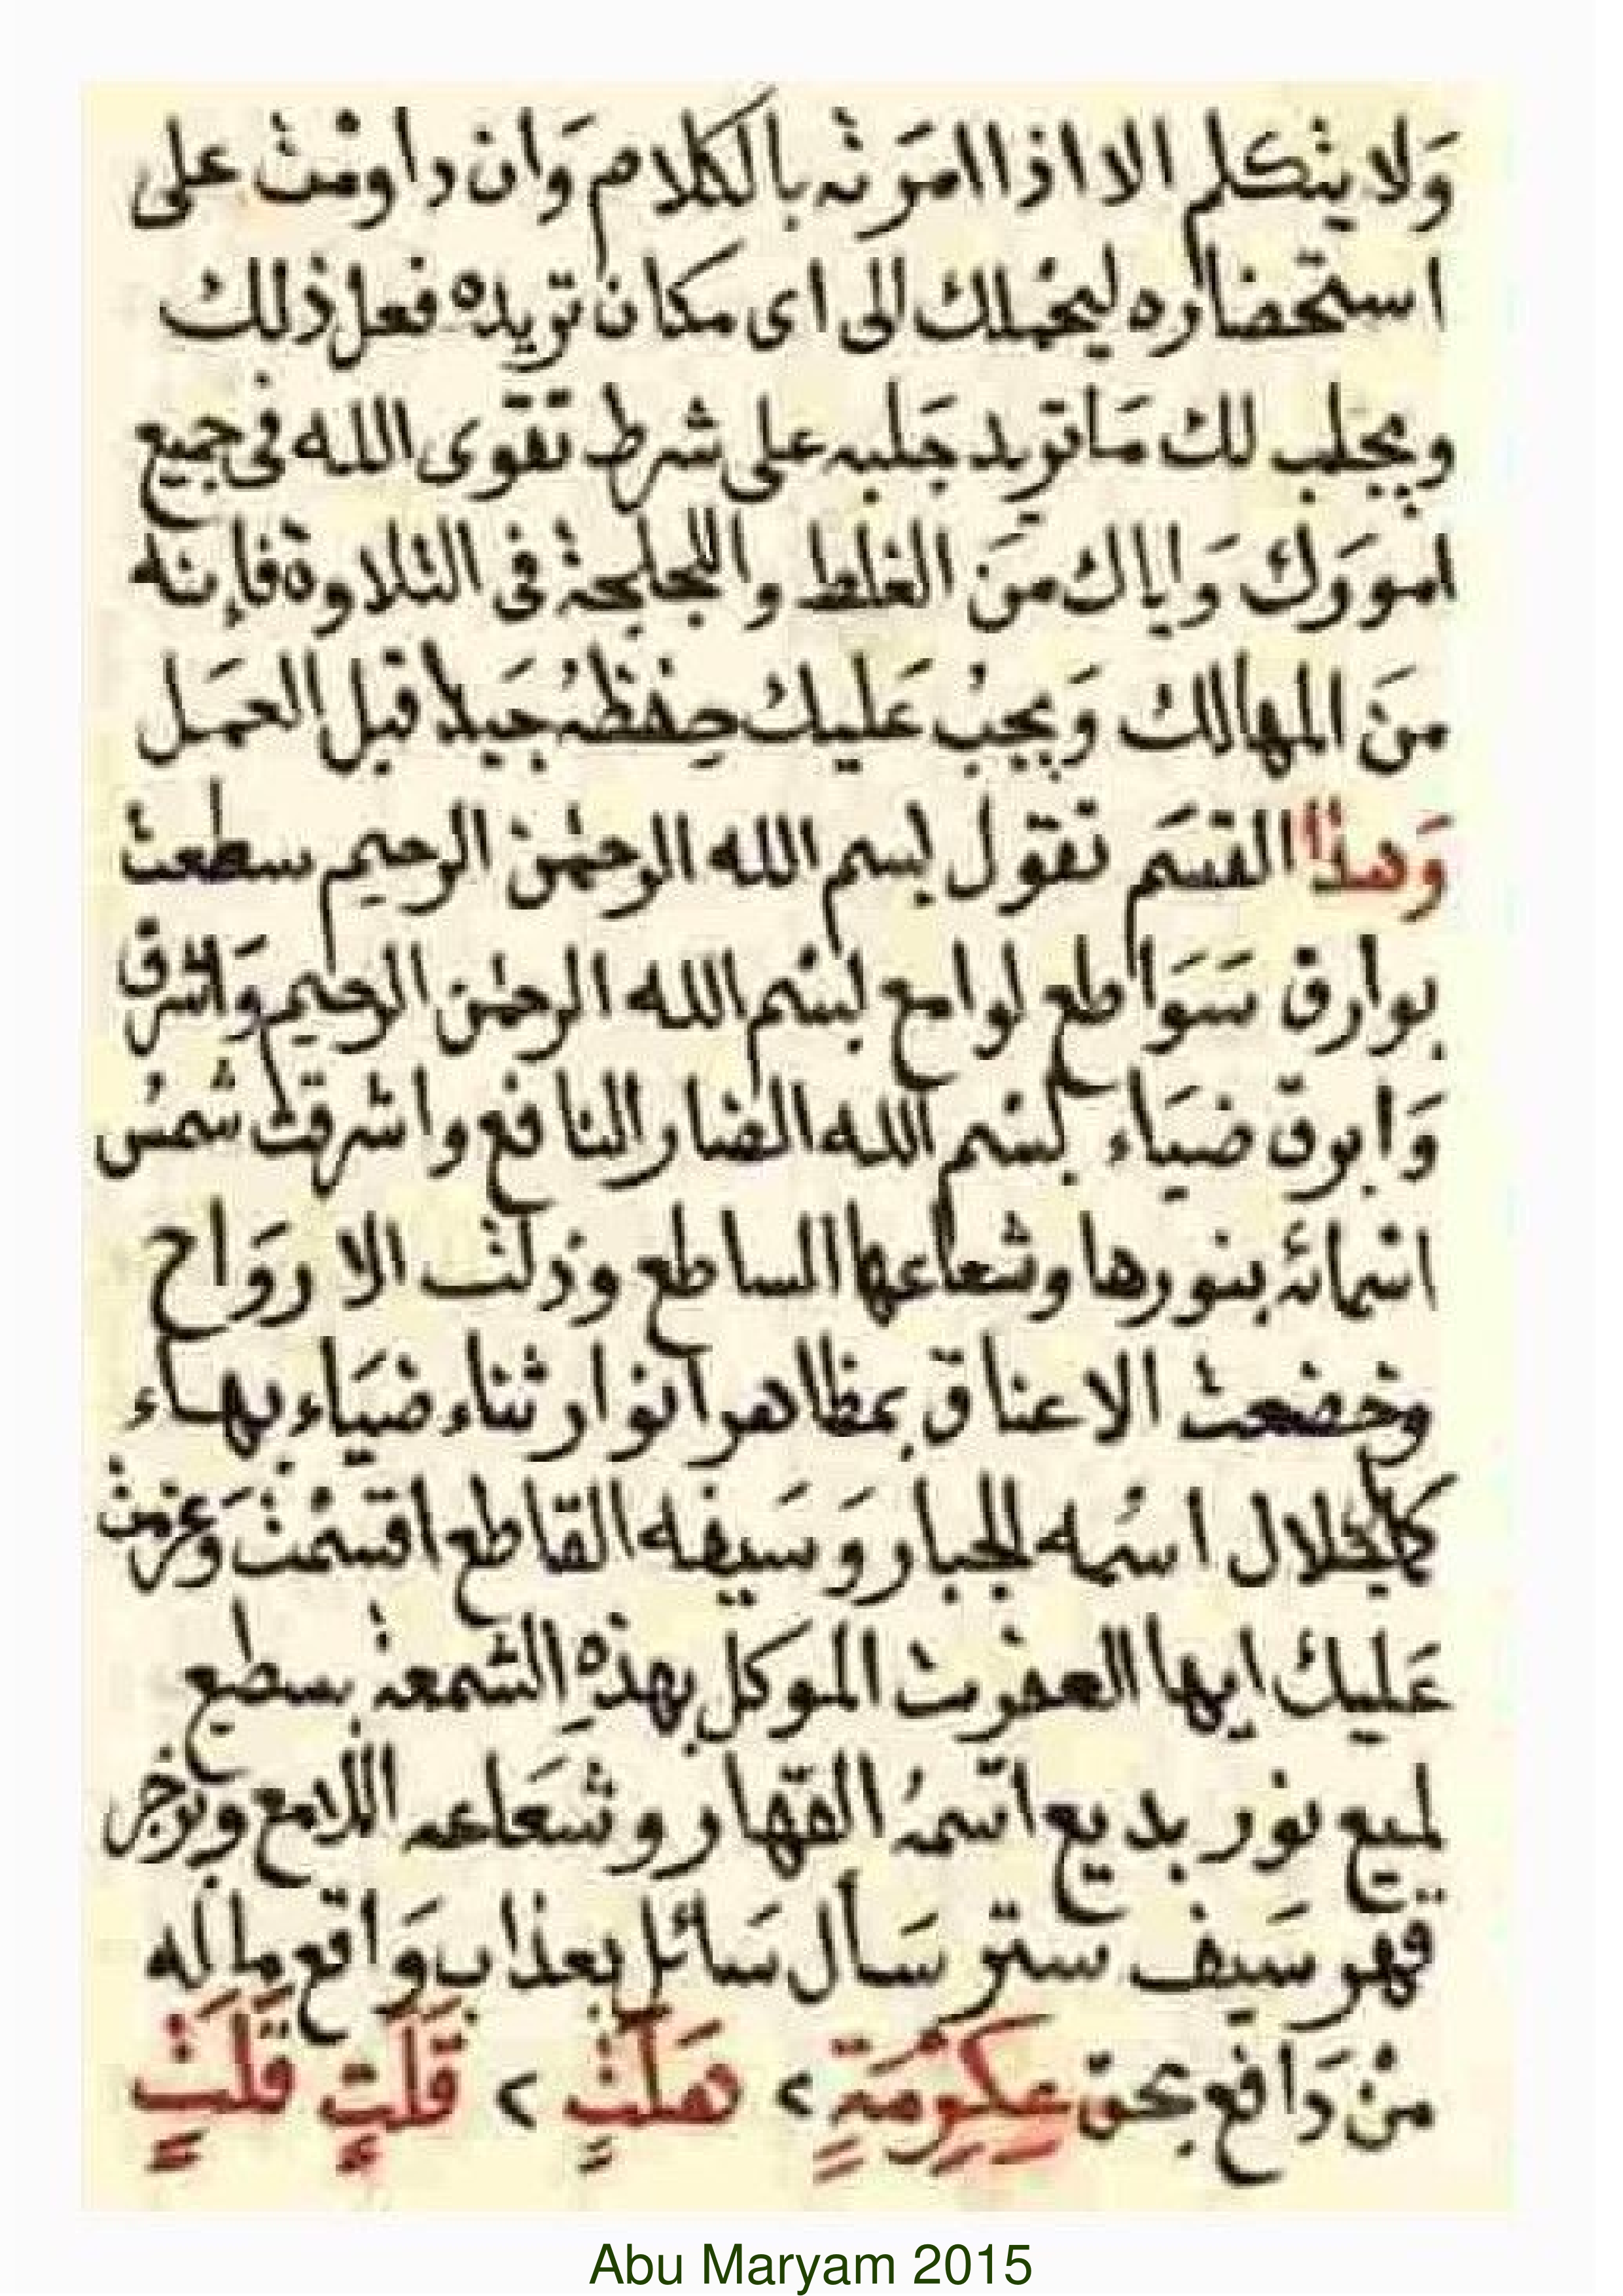 وَلا يتكلم الا اذا امَرَته بالكلام وَان داومْت على
استحضاره ليحْملك الى اى مكان تريده فعل ذلك
ويجلب لك مَا تريد جَلبه على شرط تقوى الله فى جميع
امورَك وَاياك منَ الغلط واللجلجة فى التلاوة فإنه
منَ المهالك وَيجبُ عَليك حِفظهُ جَيدًا قبل العمَل
وَهذا القسَم تقول بسم الله الرحمٰن الرحيم سطعت
بوارق سَوَاطع لوامع بسْم الله الرحمٰن الرحيم وَاشرق
وَابرق ضيَاء بسْم الله الضار النافع واشرقت شمسُ
اسْمائه بنورها وشعاعها الساطع وذلت الا روَاح
وخضعت الاعناق بمظاهر انوار ثناء ضيَاء بهاء
كمال جلال اسْمه الجبار وَسَيفه القاطع اقسمْت وَعزمت
عَليك ايها العفريت الموَكل بهذهِ الشمعة بسطيع
لميع نور بديع اسْمهُ القهار وشعَاعه اللامع وبزجر
قهر سَيف ستر سَأل سَائل بعذاب وَاقع مالَه
منْ دَافع بحق عِكِرْمَةٍ ٢ هَلَتٍ ٢ قَلَتٍ قَلَتٍ
Abu Maryam 2015